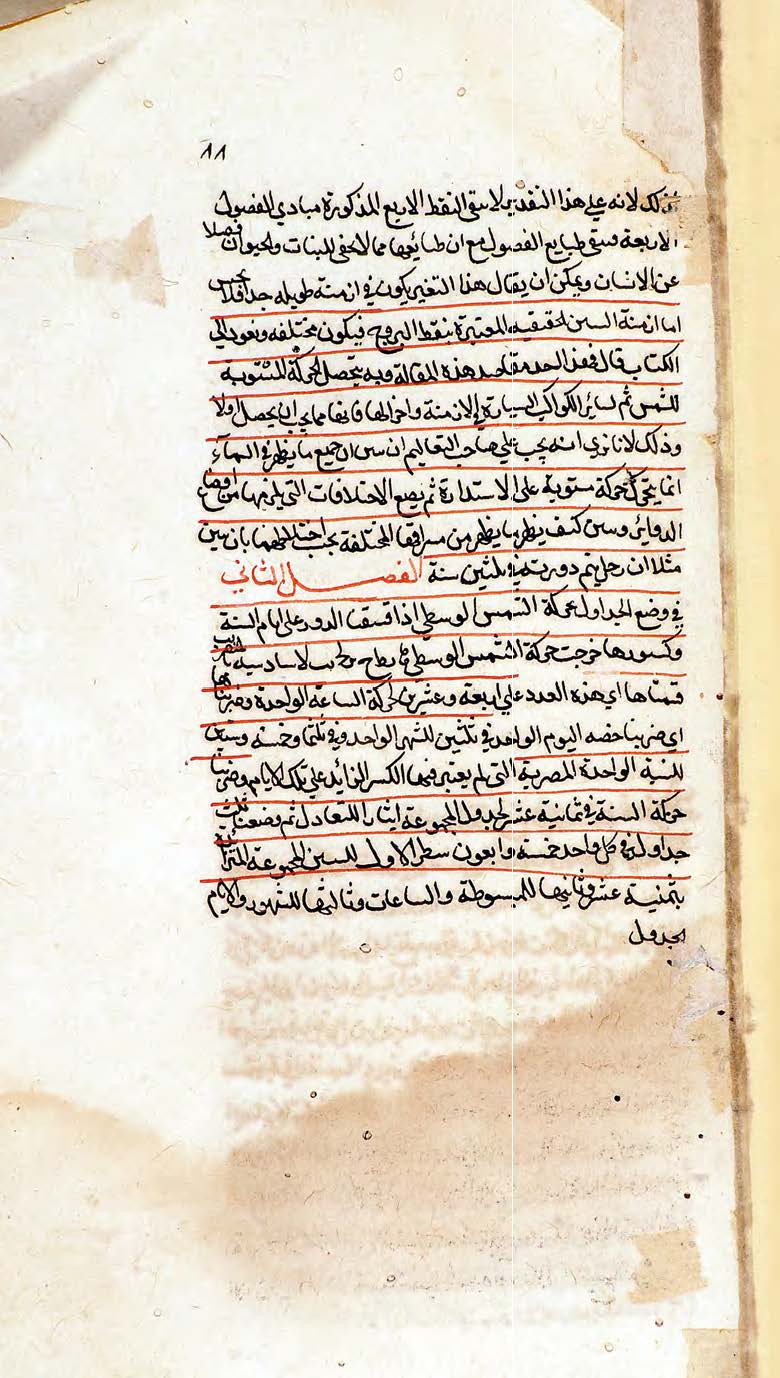 ٨٨
ذلك لانه على هذا التقدير لا يبقى النقط الاربع المذكورة مبادي للفصول
الاربعة ويبقى طبايع الفصول مع ان طبائعها مما لا يخفى للنبات والحيوان فضلا
عن الانسان ويمكن ان يقال هذا التغير يكون في ازمنة طويله جدا فلا
اما ازمنة السنين الحقيقيه المعتبرة بنقط البروج فيكون مختلفه ونعود الى
الكتاب قال فهذا احد مقاصد هذه المقالة وبه يتحصل الحركة المستوية
للشمس ثم لسائر الكواكب السيارة في الازمنة واحوالها فانها مما يجب ان يحصل اولا
وذلك لانا نرى انه يجب على صاحب التعاليم ان يبين ان جميع ما يظهر في السماء
انما يتحرك حركة مستوية على الاستدارة ثم يضع الاختلافات التي يلزمها من اوضاع
الدواير ويبين كيف يظهر ما يظهر من المختلفة بحسب اختلاطهما بان يبين
مثلا ان زحل يتم دورته في ثلثين سنة الفصل الثاني
في وضع الجداول لحركة الشمس الوسطى اذا قسمنا الدور على ايام السنة
وكسورها خرجت حركة الشمس الوسطى لاسادسيه
قسمناها اي هذه العدد على اربعة وعشرين لحركة الساعة الواحدة وضربناها
اي ضربنا حصه اليوم الواحد في ثلثين للشهر الواحد وفي ثلثمائة وخمسه وستين
للسنة الواحدة المصرية التي لم يعتبر فيها الكسر الزائد على تلك الايام وضربنا
حركة السنة في ثمانية عشر لجدول المجموعة ايثارا للتعادل ثم وضعنا ثلث
جداول في كل واحد خمسه واربعون سطرا الاول للسنين المجموعة المتزائدة
بثمنية عشر وثانيها للمبسوطة والساعات وثالثها للشهور والايام
الجدول